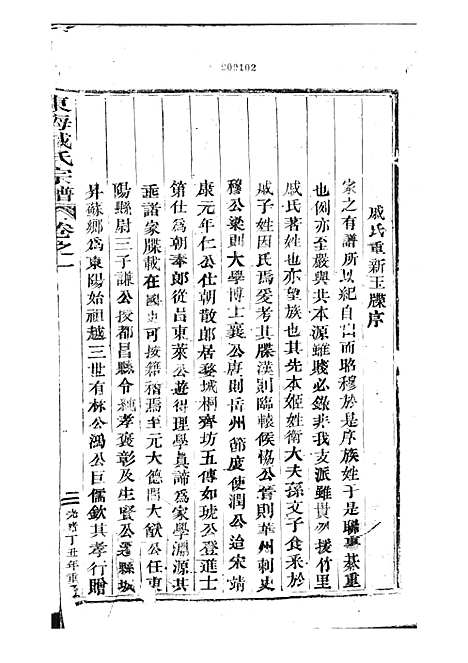 202102
戚氏重新玉牒序
家之有譜所以紀自出而昭穆於是序族姓于是聯事綦重
也例亦至嚴與其本源雖賤必錄非我支派雖貴勿援竹里
戚氏著姓也亦望族也其先本姬姓衛大夫孫文子食采於
戚子姓因氏焉爰考其牒漢則臨轅候協公晉則華州刺史
穆公梁則大學博士襄公唐則岳州節度使潤公迨宋靖
康元年仁公仕朝散郎居婺城桐齊坊五傳如琥公登進士
第仕為朝奉郎從呂東萊公遊得理學真諦為家學淵源其
垂諸家牒載在國史可按籍稽焉至元大德間大猷公任東
陽縣尉三子謙公授都昌縣令純孝褒彰及生賢公遷縣城
昇蘇鄉為東陽始祖越三世有林公鴻公巨儒欽其孝行贈
東海戚氏宗譜
卷之一
光緒丁丑年重